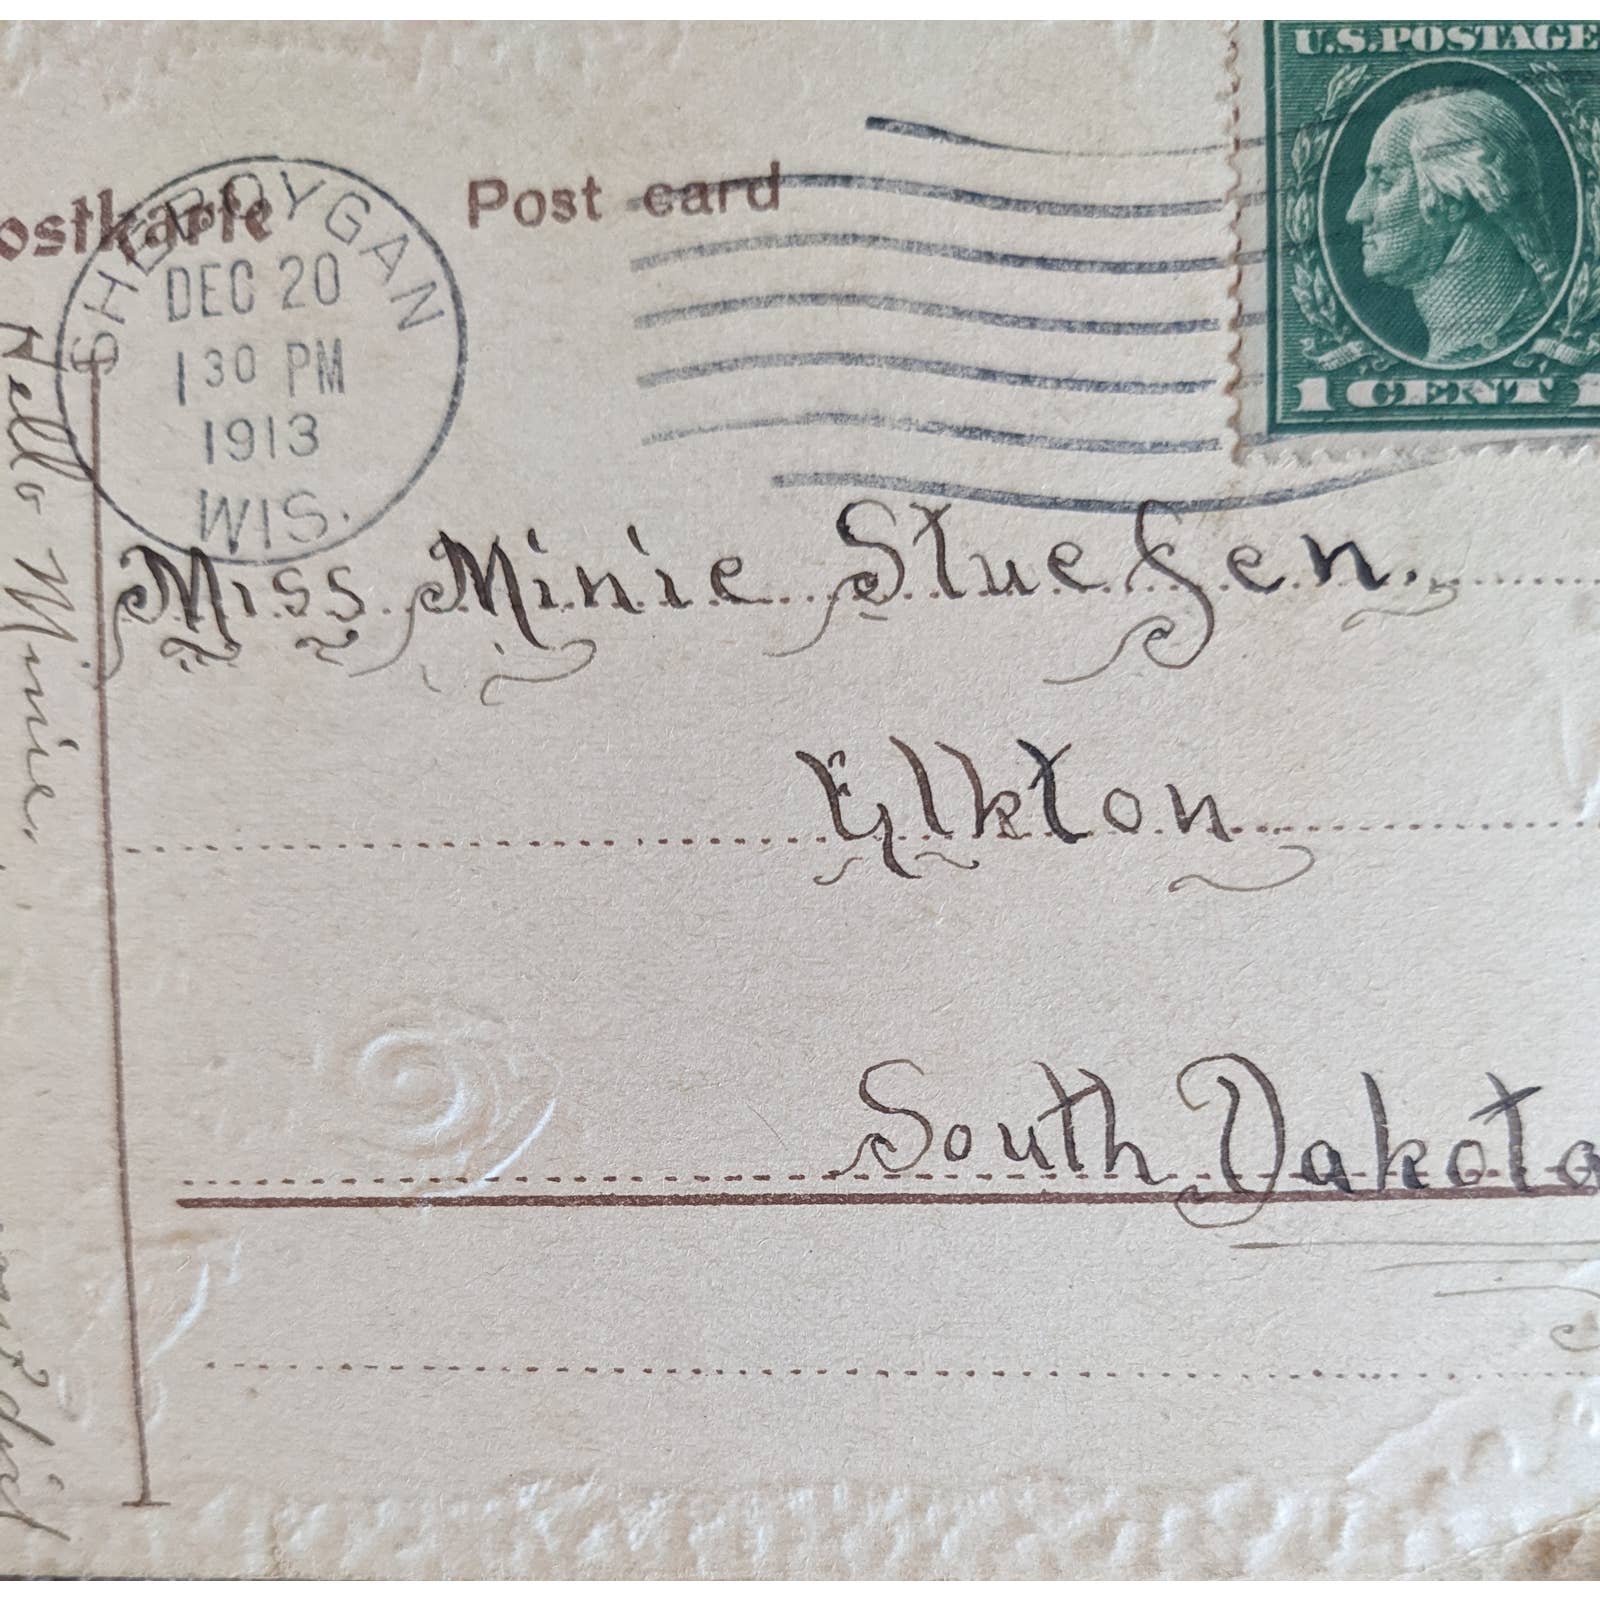 U.S.POSTAGE
ostkarte Post card
SHEBOYGAN
DEC 20
1 30 PM
1913
WIS.
1 CENT 1
Miss Minie Stuefen.
Elkton
South Dakota
Hello Minie.